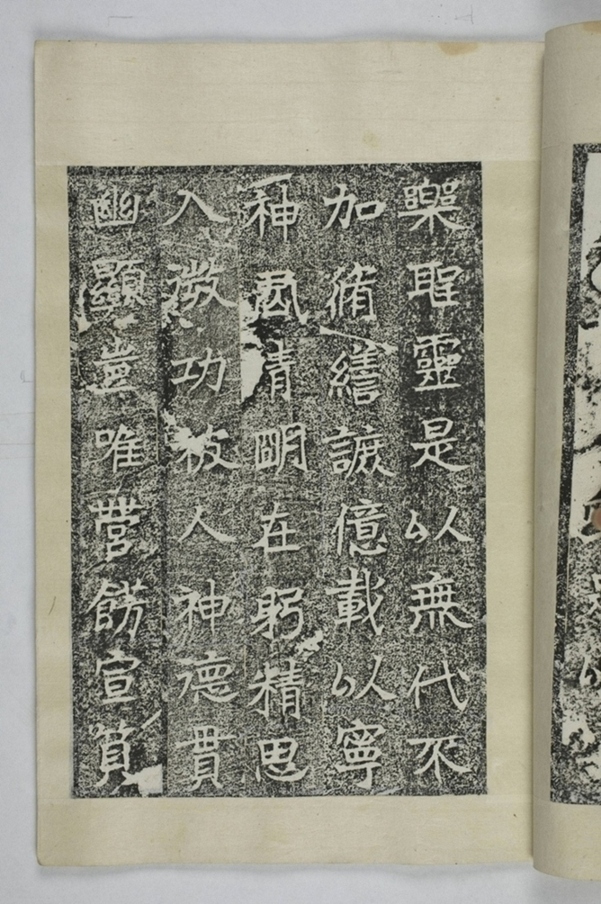 樂聖靈是以無代不
加脩繕謶億載以寧
神君清明在躬精思
入微功被人神德貫
幽顯豈唯營餝宣筫